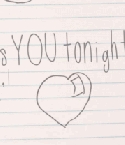 s YOU tonight